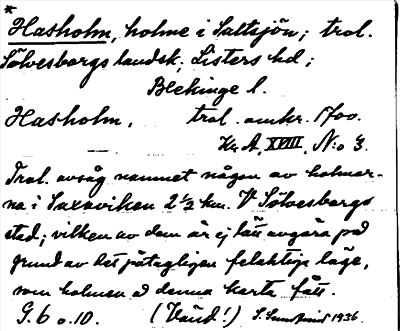 *
Hasholm, holme i Saltsjön; trol.
Sölvesborgs landsk., Listers hd;
Blekinge l.
Hasholm. trol. omkr. 1700.
Kr. A. XVIII, N:o 3.
Trol. avsåg namnet någon av holmar-
na i Saxaviken 2 1/2 km. V Sölvesborgs
stad; vilken av dem är ej lätt avgöra på
grund av det påtagligen felaktiga läge,
som holmen å denna karta fått.
G. 6 o. 10. (Vänd!) 1936.